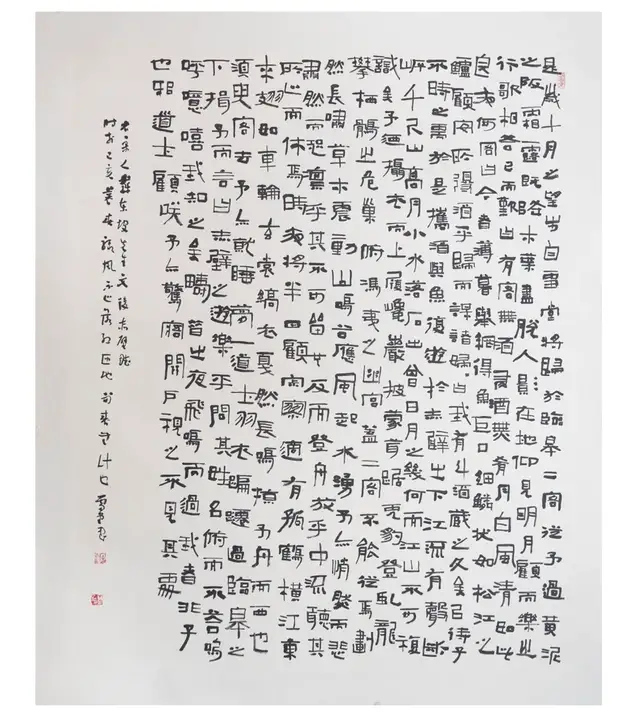 是歲十月之望步自雪堂將歸於臨皋二客從予過黃泥
之阪霜露既降木葉盡脫人影在地仰見明月顧而樂之
行歌相答已而歎曰有客無酒有酒無肴月白風清如此
良夜何客曰今者薄暮舉網得魚巨口細鱗狀如松江之
鱸顧安所得酒乎歸而謀諸婦婦曰我有斗酒藏之久矣以待子
不時之需於是攜酒與魚復遊於赤壁之下江流有聲斷
岸千尺山高月小水落石出曾日月之幾何而江山不可復
識矣予迺攝衣而上履巉巖披蒙茸踞虎豹登虬龍
攀栖鶻之危巢俯馮夷之幽宮蓋二客不能從焉劃
然長嘯草木震動山鳴谷應風起水湧予亦悄然而悲
肅然而恐凜乎其不可留也反而登舟放乎中流聽其
所止而休焉時夜將半四顧寂寥適有孤鶴橫江東
來翅如車輪玄裳縞衣戛然長鳴掠予舟而西也
須臾客去予亦就睡夢一道士羽衣蹁躚過臨皋之
下揖予而言曰赤壁之遊樂乎問其姓名俯而不答嗚
呼噫嘻我知之矣疇昔之夜飛鳴而過我者非子
也邪道士顧笑予亦驚寤開戶視之不見其處
書宋人蘇東坡先生文後赤壁賦
時在己亥暮春